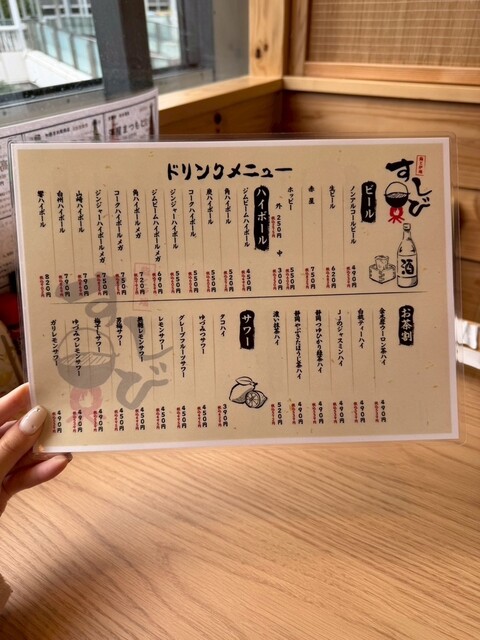 ドリンクメニュー
すしび
酒
ビール
ノンアルコールビール 490円
生ビール 620円
赤星 750円
ホッピー 550円
外 250円 中 300円
ハイボール
ジムビームハイボール 450円
角ハイボール 550円
炭ハイボール 550円
コークハイボール 550円
ジンジャーハイボール 550円
ジムビームハイボールメガ 690円
角ハイボールメガ
コークハイボールメガ 790円
ジンジャーハイボールメガ 750円
山崎ハイボール 790円
白州ハイボール 790円
響ハイボール 820円
お茶割
金木犀ウーロン茶ハイ 490円
白桃ティーハイ 490円
JJのジャスミンハイ 490円
静岡つゆひかり緑茶ハイ 490円
静岡やぶきたほうじ茶ハイ 490円
濃い抹茶ハイ 520円
サワー
タコハイ 390円
ゆづみつサワー 450円
グレープフルーツサワー 450円
レモンサワー 450円
レモンサワー 450円
サワー 450円
サワー 490円
ゆづみつレモンサワー 490円
ガリレモンサワー 490円
すしび